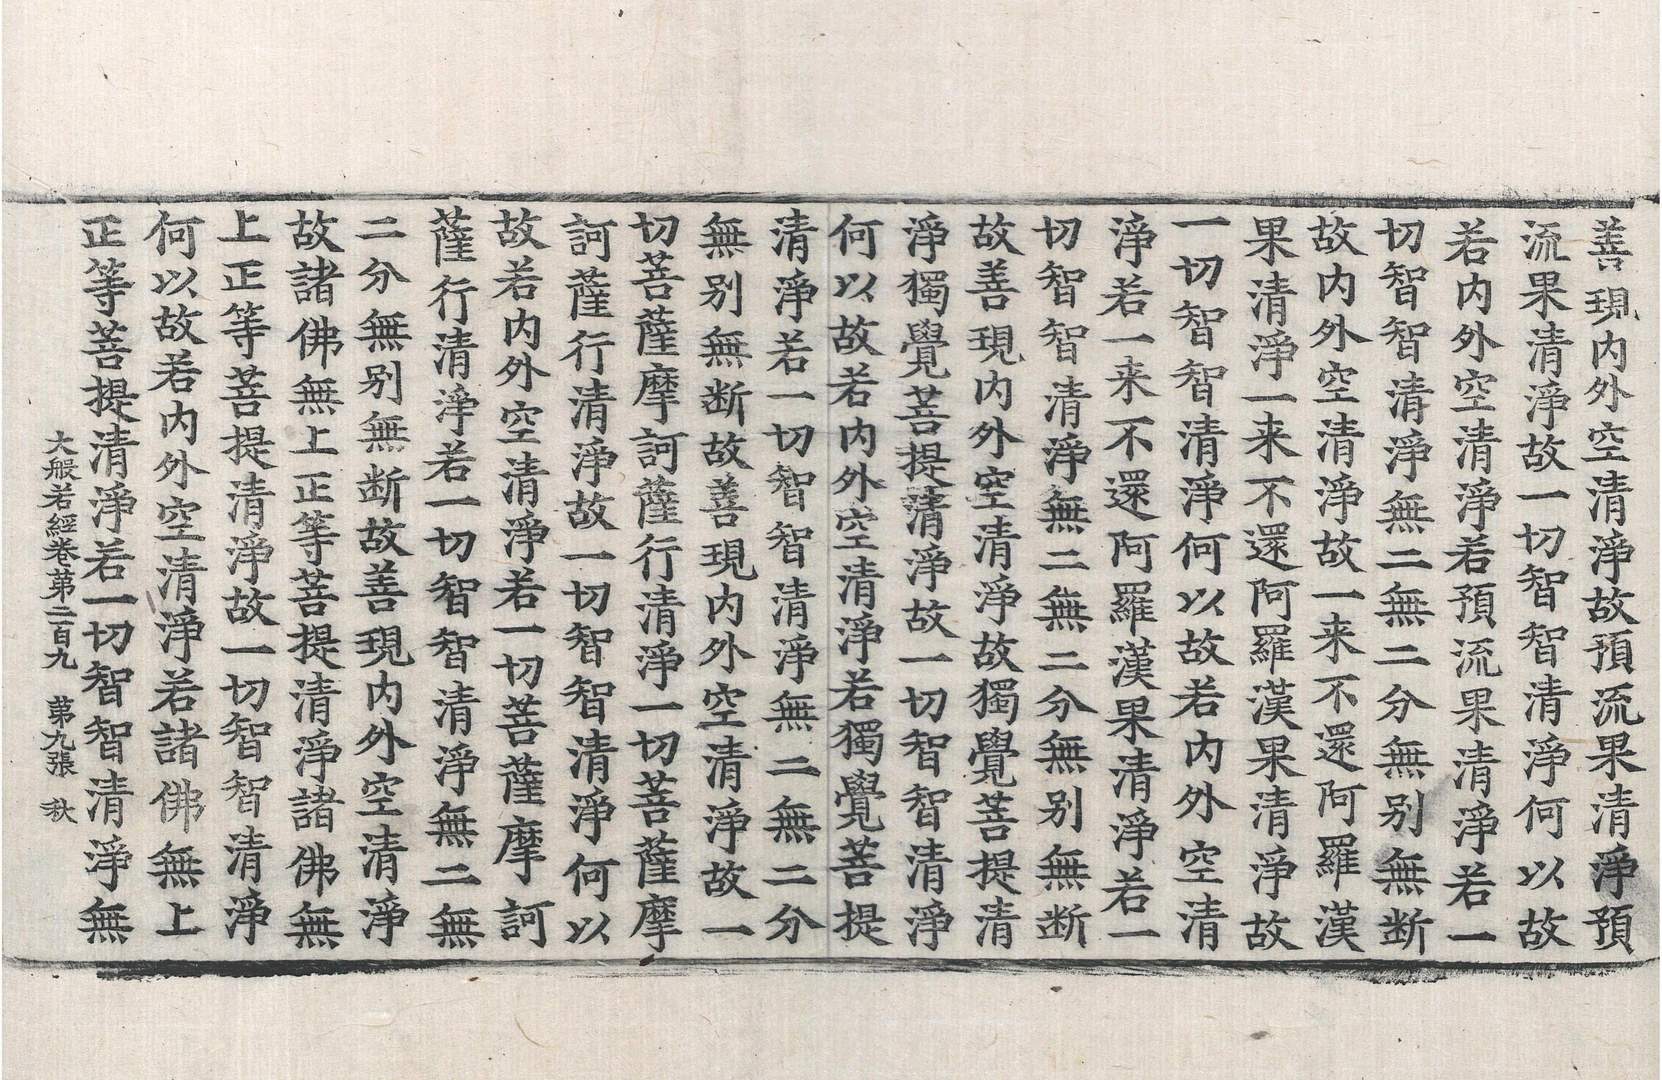 善現内外空清淨故預流果清淨預
流果清淨故一切智智清淨何以故
若内外空清淨若預流果清淨若一
切智智清淨無二無二分無别無断
故内外空清淨故一来不還阿羅漢
果清淨一来不還阿羅漢果清淨故
一切智智清淨何以故若内外空清
淨若一来不還阿羅漢果清淨若一
切智智清淨無二無二分無别無断
故善現内外空清淨故獨覺菩提清
淨獨覺菩提清淨故一切智智清淨
何以故若内外空清淨若獨覺菩提
清淨若一切智智清淨無二無二分
無别無断故善現内外空清淨故一
切菩薩摩訶薩行清淨一切菩薩摩
訶薩行清淨故一切智智清淨何以
故若内外空清淨若一切菩薩摩訶
薩行清淨若一切智智清淨無二無
二分無别無断故善現内外空清淨
故諸佛無上正等菩提清淨諸佛無
上正等菩提清淨故一切智智清淨
何以故若内外空清淨若諸佛無上
正等菩提清淨若一切智智清淨無
大般若經卷第二百九 第九張 秋